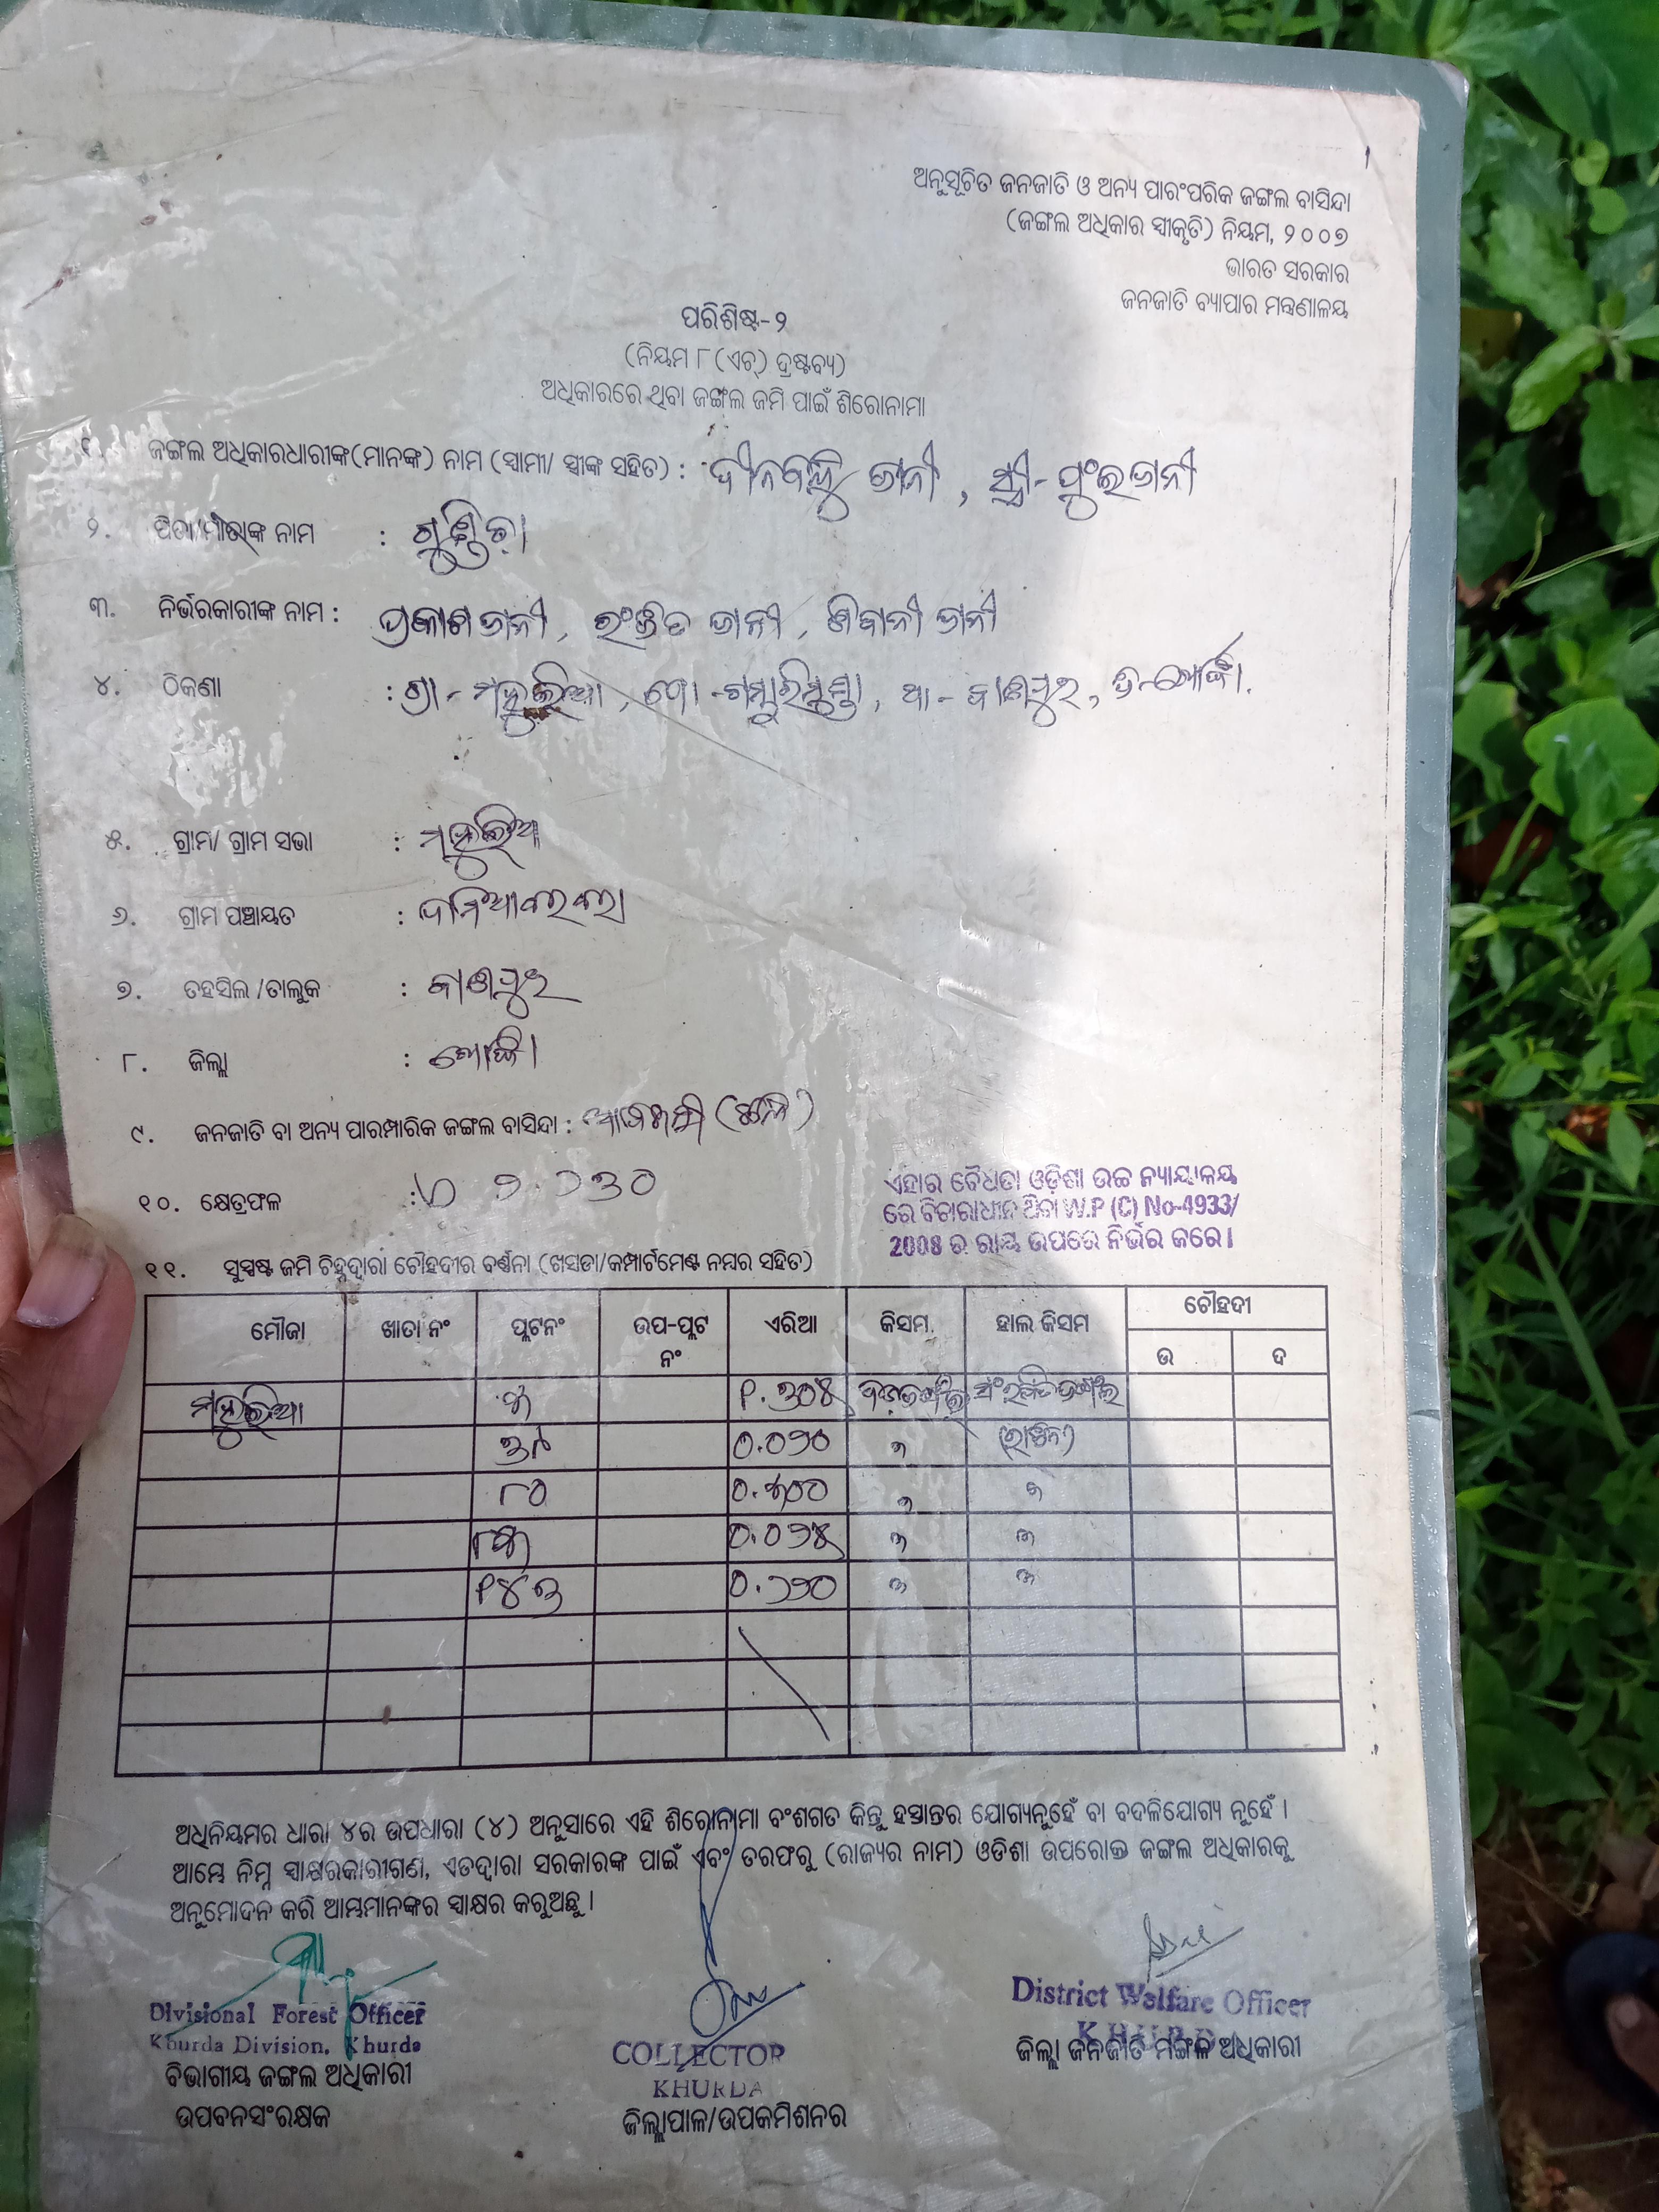 ଅନୁସୂଚିତ ଜନଜାତି ଓ ଅନ୍ୟ ପାରଂପରିକ ଜଙ୍ଗଲ ବାସିନ୍ଦା
(ଜଙ୍ଗଲ ଅଧିକାର ସ୍ୱୀକୃତି) ନିୟମ, ୨୦୦୭
ଭାରତ ସରକାର
ଜନଜାତି ବ୍ୟାପାର ମନ୍ତ୍ରଣାଳୟ
ପରିଶିଷ୍ଟ-୨
(ନିୟମ ୮ (ଏଚ୍) ଦ୍ରଷ୍ଟବ୍ୟ)
ଅଧିକାରରେ ଥିବା ଜଙ୍ଗଲ ଜମି ପାଇଁ ଶିରୋନାମା
୧. ଜଙ୍ଗଲ ଅଧିକାରଧାରୀଙ୍କ(ମାନଙ୍କ) ନାମ (ସ୍ୱାମୀ/ ସ୍ତ୍ରୀଙ୍କ ସହିତ) : ଦୀନବନ୍ଧୁ ଜାନୀ, ସ୍ତ୍ରୀ-
୨. ପିତା/ମାତାଙ୍କ ନାମ : ଗୁଣ୍ଡିଚା
୩. ନିର୍ଭରକାରୀଙ୍କ ନାମ : ପ୍ରକାଶ ଜାନୀ, ରଂଜିତ ଜାନୀ, ଶିବାନୀ ଜାନୀ
୪. ଠିକଣା : ଗ୍ରା - ମହୁଲିଆ, ପୋ - ଥା - ବାଣପୁର, ଜି-ଖୋର୍ଦ୍ଧା.
୫. ଗ୍ରାମ/ ଗ୍ରାମ ସଭା : ମହୁଲିଆ
୬. ଗ୍ରାମ ପଞ୍ଚାୟତ :
୭. ତହସିଲ /ତାଲୁକ : ବାଣପୁର
୮. ଜିଲ୍ଲା : ଖୋର୍ଦ୍ଧା
୯. ଜନଜାତି ବା ଅନ୍ୟ ପାରମ୍ପାରିକ ଜଙ୍ଗଲ ବାସିନ୍ଦା :
୧୦. କ୍ଷେତ୍ରଫଳ :
ଏହାର ବୈଧତା ଓଡ଼ିଶା ଉଚ୍ଚ ନ୍ୟାୟାଳୟ
ରେ ବିଚାରାଧୀନ ଥିବା W.P (C) No-4933/
2008 ର ରାୟ ଉପରେ ନିର୍ଭର କରେ।
୧୧. ସୁସ୍ପଷ୍ଟ ଜମି ଚିହ୍ନଦ୍ୱାରା ଚୌହଦୀର ବର୍ଣନା (ଖସଡା/କମ୍ପାର୍ଟମେଣ୍ଟ ନମ୍ବର ସହିତ)
ମୌଜା ଖାତା ନଂ ପ୍ଲଟନଂ ଉପ-ପ୍ଲଟ ନଂ ଏରିଆ କିସମ ହାଲ କିସମ ଚୌହଦୀ
ଉ ଦ
ମହୁଲିଆ ୫ ୧.୩୦୫ ସଂରକ୍ଷିତ ଜଙ୍ଗଲ
୩୯ ୦.୦୨୦ "
୮୦ ୦.୫୦୦ " "
୮୫ ୦.୦୨୫ " "
୧୪୩ " "
ଅଧିନିୟମର ଧାରା ୪ର ଉପଧାରା (୪) ଅନୁସାରେ ଏହି ଶିରୋନାମା ବଂଶଗତ କିନ୍ତୁ ହସ୍ତାନ୍ତର ଯୋଗ୍ୟନୁହେଁ ବା ବଦଳିଯୋଗ୍ୟ ନୁହେଁ ।
ଆମ୍ଭେ ନିମ୍ନ ସ୍ୱାକ୍ଷରକାରୀଗଣ, ଏତଦ୍ୱାରା ସରକାରଙ୍କ ପାଇଁ ଏବଂ ତରଫରୁ (ରାଜ୍ୟର ନାମ) ଓଡିଶା ଉପରୋକ୍ତ ଜଙ୍ଗଲ ଅଧିକାରକୁ
ଅନୁମୋଦନ କରି ଆମ୍ଭମାନଙ୍କର ସ୍ୱାକ୍ଷର କରୁଅଛୁ ।
Divisional Forest Officer
Khurda Division, Khurda
ବିଭାଗୀୟ ଜଙ୍ଗଲ ଅଧିକାରୀ
ଉପବନସଂରକ୍ଷକ
COLLECTOR
KHURDA
ଜିଲ୍ଲାପାଳ/ଉପକମିଶନର
District Welfare Officer
KHURDA
ଜିଲ୍ଲା ଜନଜାତି ମଙ୍ଗଳ ଅଧିକାରୀ